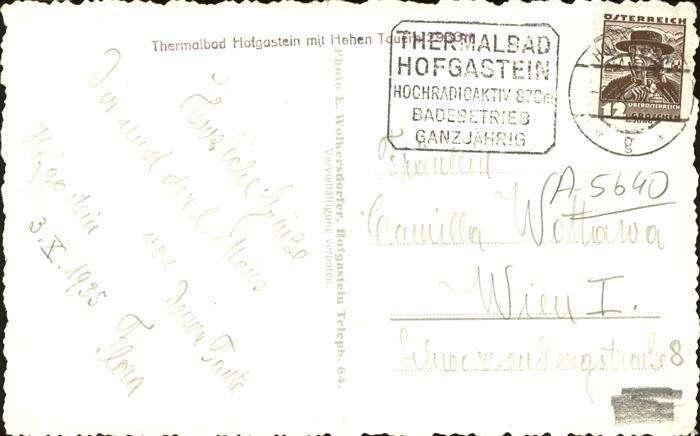 Thermalbad Hofgastein mit Hohen Tauern, 2960 m
THERMALBAD
HOFGASTEIN
HOCHRADIOAKTIV 870m
BADEBETRIEB
GANZJÄHRIG
ÖSTERREICH
12
OBERÖSTERREICH
GROSCHEN
g
Photo E. Wolkersdorfer, Hofgastein Teleph. 64.
Vervielfältigung verboten.
Herzliche Grüße
Dir und der l. Mama
von Deiner Tante
Flora
Hofgastein
3.X.1935
Fräulein
A-5640
Camilla Wottawa
Wien I.
Schwarzenbergstraße 8